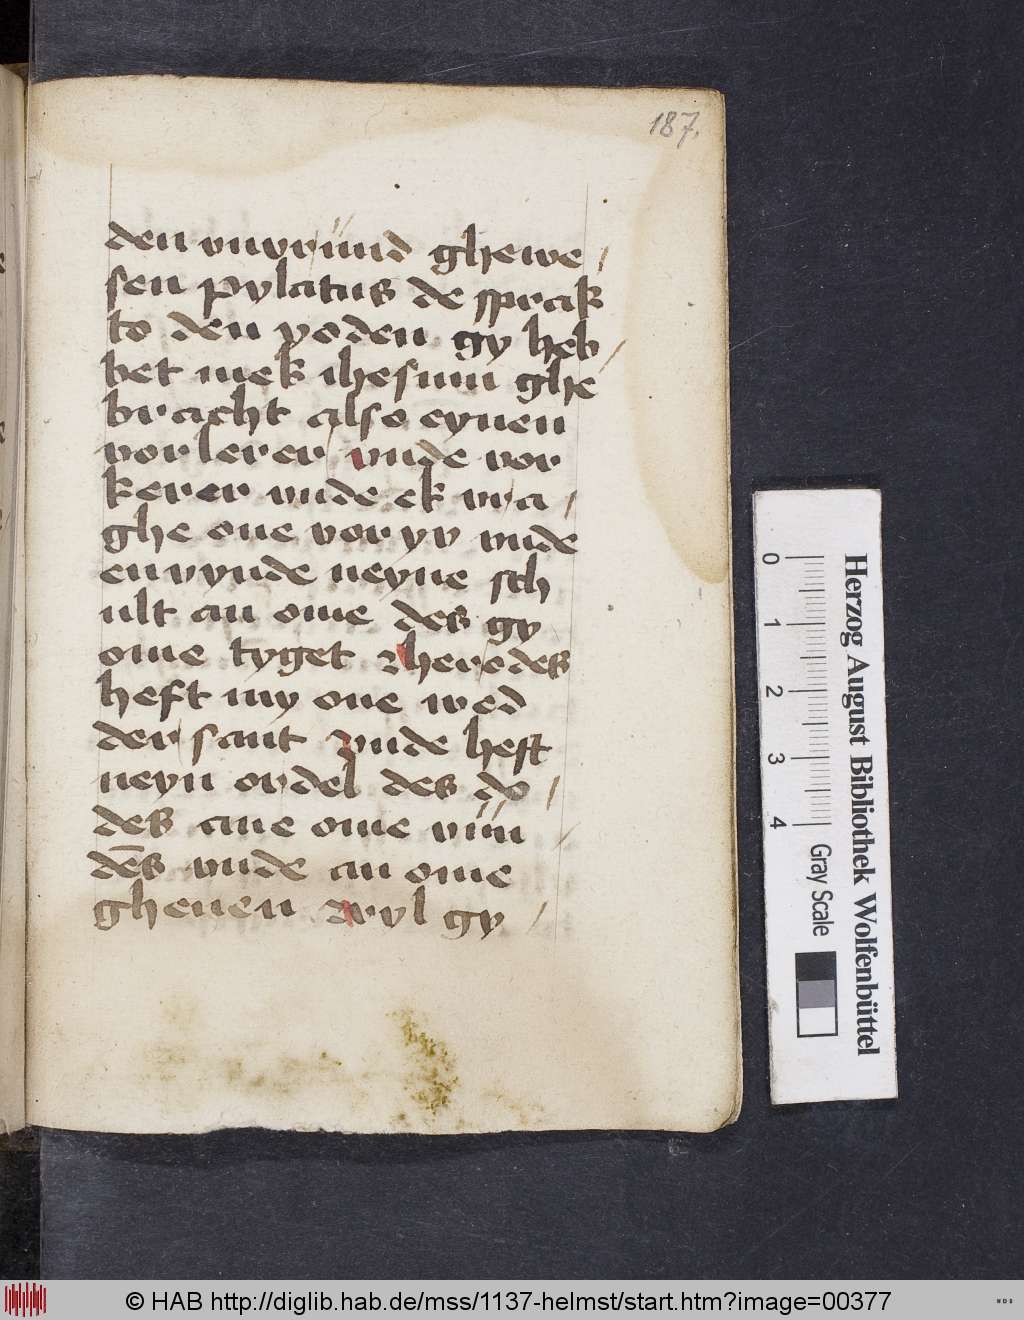 187.
den vnvrund ghewe
sen pylatus de sprak
to den yoden gy heb
bet mek ihesum ghe
bracht also eynen
vorlerer vnde vor
kerer vnde ek vra
ghe one vor yv vnde
en vynde neyne sch
ult an ome des gy
ome tyget herodes
heft my one wed
der sant vnde heft
neyn ordel des do
des ane ome vun
dēs vnde an ome
gheuen wyl gy
Herzog August Bibliothek Wolfenbüttel
0 1 2 3 4
Gray Scale
© HAB http://diglib.hab.de/mss/1137-helmst/start.htm?image=00377